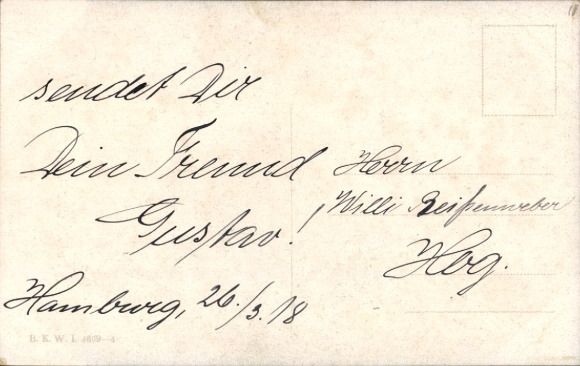 sendet Dir
Dein Freund
Gustav.
Hamburg, 26./3.18
Herrn
Willi Reißenweber
Hbg.
B. K. W. I. 4609—4